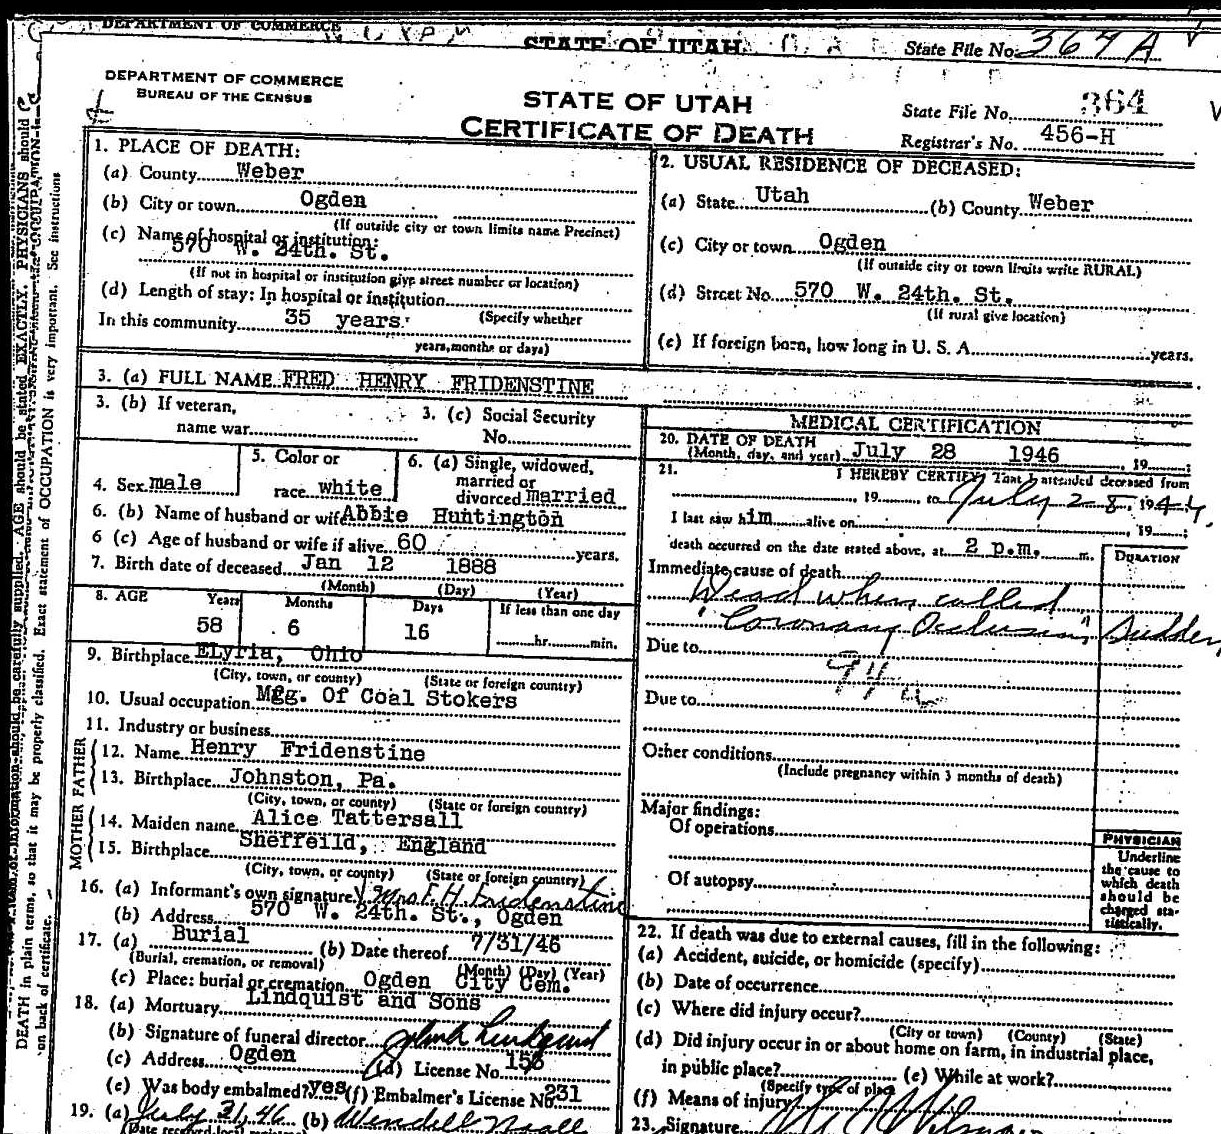 DEPARTMENT OF COMMERCE
STATE OF UTAH
State File No. 367 A
DEPARTMENT OF COMMERCE
BUREAU OF THE CENSUS
STATE OF UTAH
CERTIFICATE OF DEATH
State File No. 364
Registrar's No. 456-H
1. PLACE OF DEATH:
(a) County Weber
(b) City or town Ogden
(If outside city or town limits name Precinct)
(c) Name of hospital or institution:
570 W. 24th. St.
(If not in hospital or institution give street number or location)
(d) Length of stay: In hospital or institution
In this community 35 years. (Specify whether
years, months or days)
2. USUAL RESIDENCE OF DECEASED:
(a) State Utah (b) County Weber
(c) City or town Ogden
(If outside city or town limits write RURAL)
(d) Street No. 570 W. 24th. St.
(If rural give location)
(e) If foreign born, how long in U. S. A. years.
3. (a) FULL NAME FRED HENRY FRIDENSTINE
3. (b) If veteran,
name war
3. (c) Social Security
No.
4. Sex male
5. Color or
race white
6. (a) Single, widowed,
married or
divorced married
6. (b) Name of husband or wife Abbie Huntington
6 (c) Age of husband or wife if alive 60 years.
7. Birth date of deceased Jan 12 1888
(Month) (Day) (Year)
8. AGE Years Months Days If less than one day
58 6 16 hr. min.
9. Birthplace ELyria, Ohio
(City, town, or county) (State or foreign country)
10. Usual occupation Mgg. Of Coal Stokers
11. Industry or business
FATHER
12. Name Henry Fridenstine
13. Birthplace Johnston, Pa.
(City, town, or county) (State or foreign country)
MOTHER
14. Maiden name Alice Tattersall
15. Birthplace Sheffeild, England
(City, town, or county) (State or foreign country)
16. (a) Informant's own signature Mrs F. H. Fridenstine
(b) Address 570 W. 24th. St., Ogden
17. (a) Burial (b) Date thereof 7/31/46
(Burial, cremation, or removal) (Month) (Day) (Year)
(c) Place: burial or cremation Ogden City Cem.
18. (a) Mortuary Lindquist and Sons
(b) Signature of funeral director
(c) Address Ogden (d) License No. 156
(e) Was body embalmed? yes (f) Embalmer's License No. 231
19. (a) July 31, 46 (b) Wendell
(Date received local
MEDICAL CERTIFICATION
20. DATE OF DEATH
(Month, day, and year) July 28 1946, 19
21. I HEREBY CERTIFY, That I attended deceased from
, 19 to July 28, 19
I last saw him alive on , 19
death occurred on the date stated above, at 2 p.m. m.
DURATION
Immediate cause of death
Dead when called
"Coronary Occlusion" Sudden
Due to
94a
Due to
Other conditions
(Include pregnancy within 3 months of death)
Major findings:
Of operations
Of autopsy
PHYSICIAN
Underline
the cause to
which death
should be
charged sta-
tistically.
22. If death was due to external causes, fill in the following:
(a) Accident, suicide, or homicide (specify)
(b) Date of occurrence
(c) Where did injury occur?
(City or town) (County) (State)
(d) Did injury occur in or about home on farm, in industrial place,
in public place? (e) While at work?
(Specify type of place)
(f) Means of injury
23. Signature
DEATH in plain terms, so that it may be properly classified. Exact statement of OCCUPATION is very important. See instructions
on back of certificate.